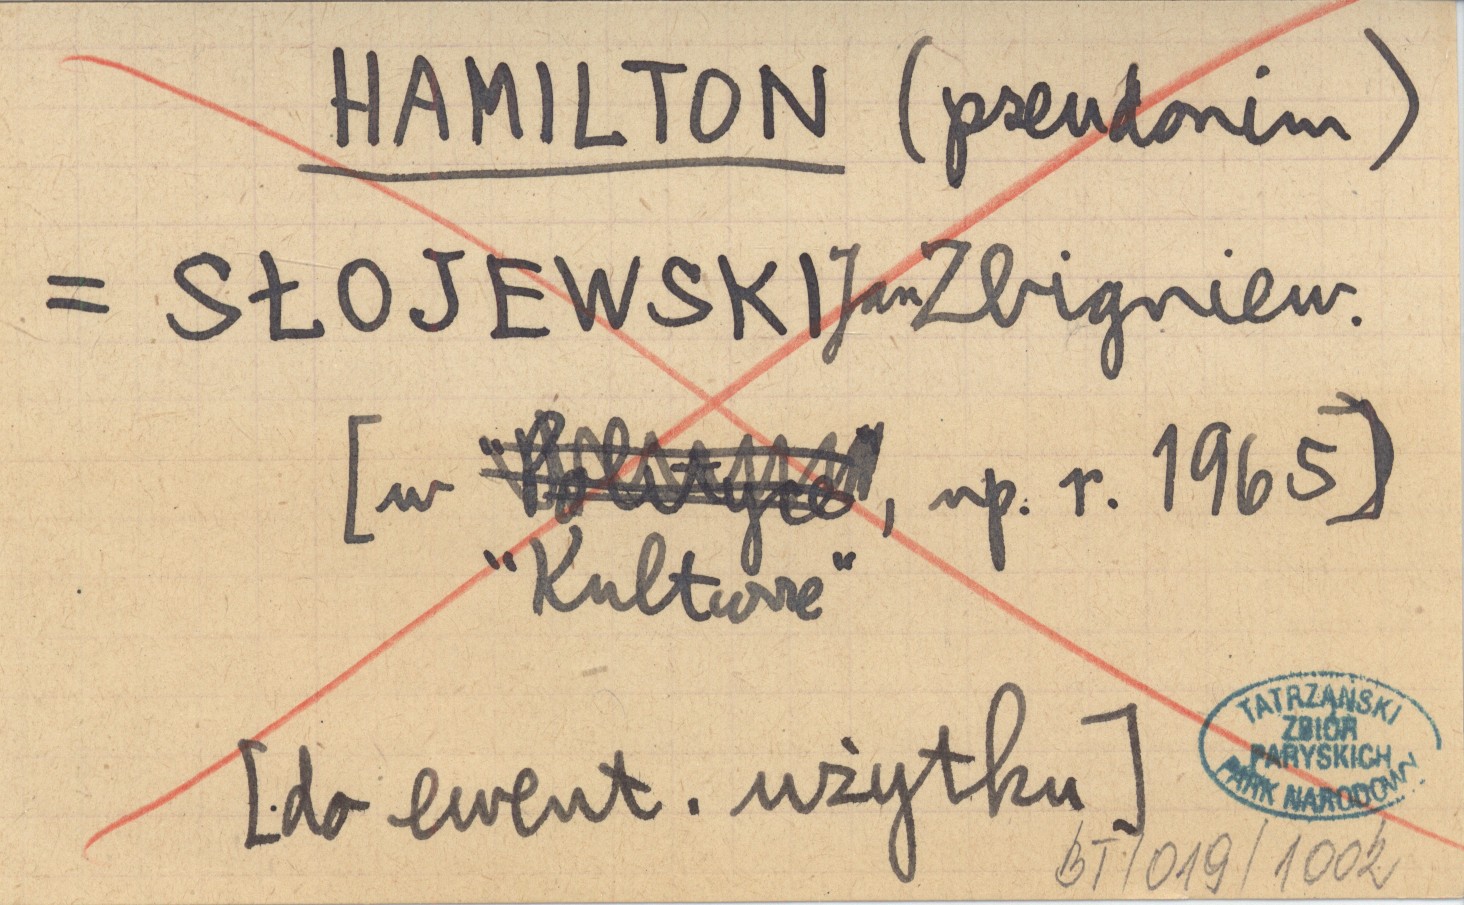 HAMILTON (pseudonim)
= SŁOJEWSKI Jan Zbigniew.
[w "Polityce", np. r. 1965]
"Kulturze"
[do ewent. użytku]
TATRZAŃSKI
ZBIÓR
PARYSKICH
PARK NARODOWY
BT/019/1002